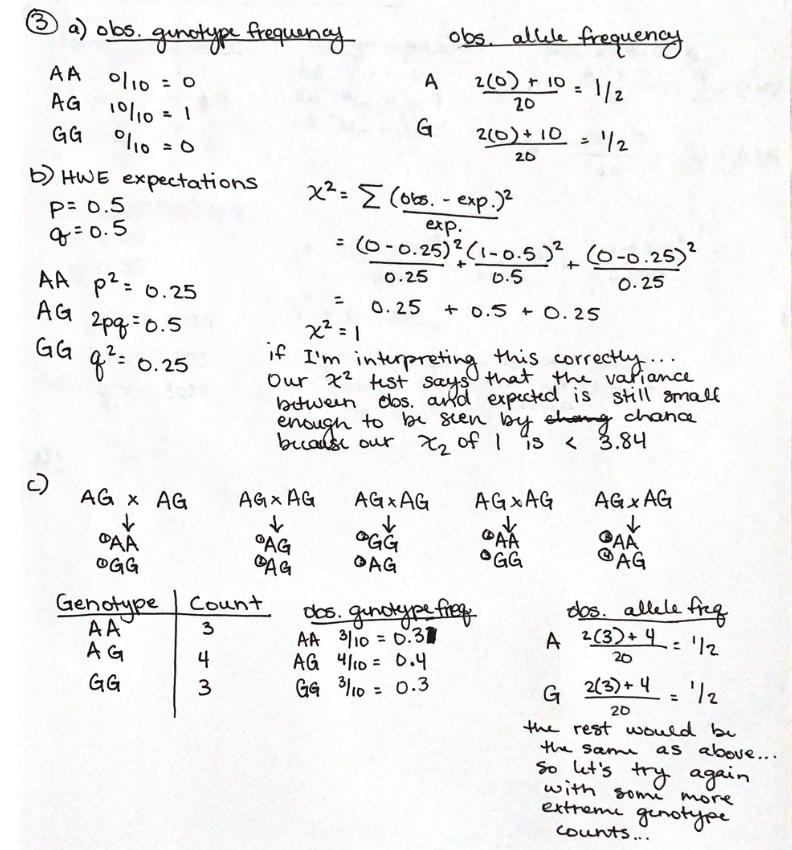 ③ a) obs. genotype frequency
AA 0/10 = 0
AG 10/10 = 1
GG 0/10 = 0
obs. allele frequency
A (2(0) + 10)/20 = 1/2
G (2(0) + 10)/20 = 1/2
b) HWE expectations
p = 0.5
q = 0.5
AA p² = 0.25
AG 2pq = 0.5
GG q² = 0.25
χ² = Σ (obs. - exp.)²/exp.
= (0 - 0.25)²/0.25 + (1 - 0.5)²/0.5 + (0 - 0.25)²/0.25
= 0.25 + 0.5 + 0.25
χ² = 1
if I'm interpreting this correctly...
Our χ² test says that the variance
between obs. and expected is still small
enough to be seen by chance
because our χ₂ of 1 is < 3.84
c)
AG x AG AG x AG AG x AG AG x AG AG x AG
↓ ↓ ↓ ↓ ↓
①AA ①AG ②GG ②AA ③AA
①GG ②AG ③AG ③GG ④AG
Genotype Count
AA 3
AG 4
GG 3
obs. genotype freq.
AA 3/10 = 0.3
AG 4/10 = 0.4
GG 3/10 = 0.3
obs. allele freq
A (2(3) + 4)/20 = 1/2
G (2(3) + 4)/20 = 1/2
the rest would be
the same as above...
so let's try again
with some more
extreme genotype
counts...